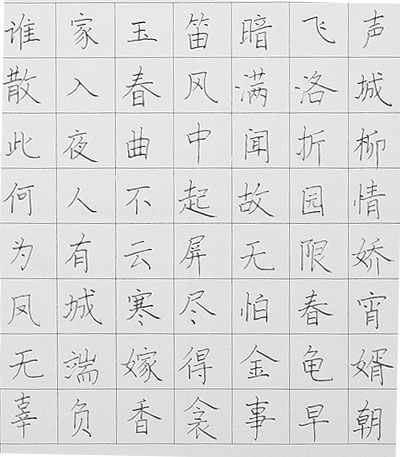 谁家玉笛暗飞声
散入春风满洛城
此夜曲中闻折柳
何人不起故园情
为有云屏无限娇
凤城寒尽怕春宵
无端嫁得金龟婿
辜负香衾事早朝